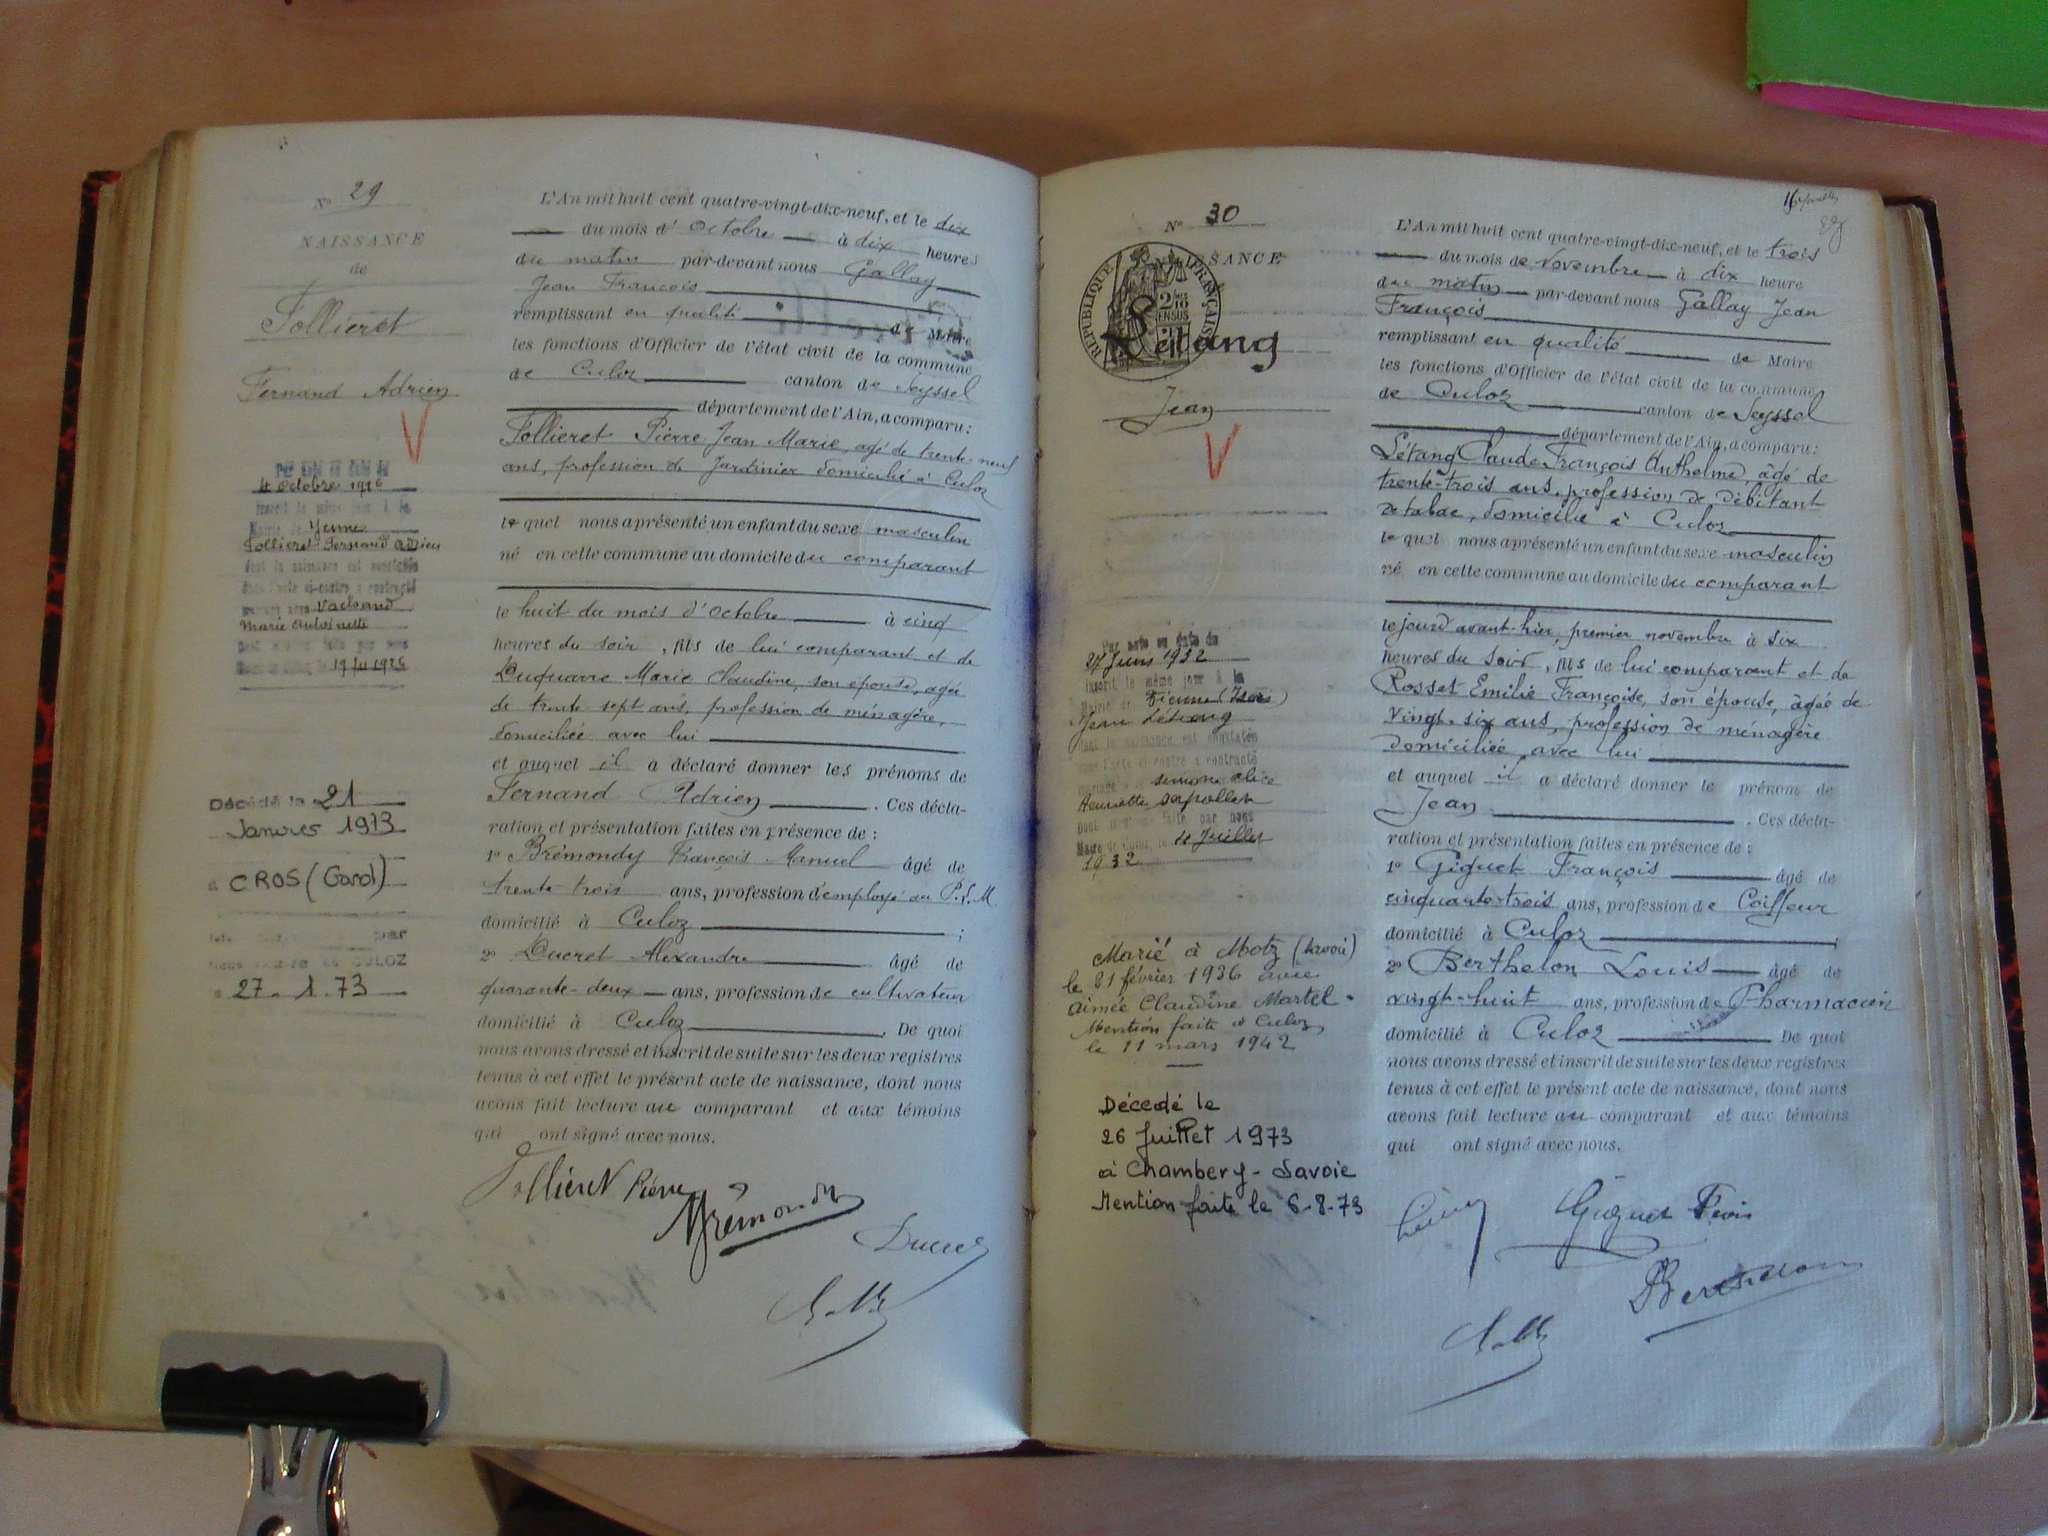 Nº 29
NAISSANCE
de
Follieret
Fernand Adrien
4 octobre 1926
inscrit le même jour à la
Mairie de Yenne
Follieret Fernand Adrien
dont la naissance est constatée
dans l'acte ci-contre a contracté
mariage avec
Marie Antoinette
19/11 1926
Décédé le 21
Janvier 1973
à CROS (Gard)
par
CULOZ
27.1.73
L'An mil huit cent quatre-vingt-dix-neuf, et le dix
du mois d'Octobre à dix heures
du matin par-devant nous Gallay
Jean François
remplissant en qualité de Maire
les fonctions d'Officier de l'état civil de la commune
de Culoz canton de Seyssel
département de l'Ain, a comparu:
Follieret Pierre Jean Marie, agé de trente-neuf
ans, profession de Jardinier domicilié à Culoz
lequel nous a présenté un enfant du sexe masculin
né en cette commune au domicile du comparant
le huit du mois d'Octobre à cinq
heures du soir, fils de lui comparant et de
Duquarre Marie Claudine, son épouse, agée
de trente-sept ans, profession de ménagère,
domiciliée avec lui
et auquel il a déclaré donner les prénoms de
Fernand Adrien. Ces décla-
ration et présentation faites en présence de :
1º Brémondy François Manuel âgé de
trente-trois ans, profession d'employé au P.L.M.
domicilié à Culoz ;
2º Ducret Alexandre âgé de
quarante-deux ans, profession de cultivateur
domicilié à Culoz. De quoi
nous avons dressé et inscrit de suite sur les deux registres
tenus à cet effet le présent acte de naissance, dont nous
avons fait lecture au comparant et aux témoins
qui ont signé avec nous.
Follieret Pierre
Brémondy
Ducret
Nº 30
NAISSANCE
RÉPUBLIQUE FRANÇAISE
2/10 EN SUS
Létang
Jean
Par acte en date du
27 Juin 1932
inscrit le même jour à la
Mairie de Vienne (Isère)
Jean Létang
dont la naissance est constatée
dans l'acte ci-contre a contracté
mariage simone alice
Henriette
dont mention faite par nous
Maire de Culoz, le 4 Juillet
1932
Marié à Motz (Savoie)
le 21 février 1936 avec
Aimée Claudine Martel.
Mention faite à Culoz,
le 11 mars 1942
Décédé le
26 Juillet 1973
à Chambery - Savoie
Mention faite le 6-8-73
L'An mil huit cent quatre-vingt-dix-neuf, et le trois
du mois de Novembre à dix heure
du matin par-devant nous Gallay Jean
François
remplissant en qualité de Maire
les fonctions d'Officier de l'état civil de la commune
de Culoz canton de Seyssel
département de l'Ain, a comparu:
Létang Claude François Anthelme, âgé de
trente-trois ans, profession de débitant
de tabac, domicilié à Culoz
lequel nous a présenté un enfant du sexe masculin
né en cette commune au domicile du comparant
le jour d'avant-hier, premier novembre à six
heures du soir, fils de lui comparant et de
Rosset Emilie Françoise, son épouse, âgée de
vingt-six ans, profession de ménagère
domiciliée avec lui
et auquel il a déclaré donner le prénom de
Jean. Ces décla-
ration et présentation faites en présence de :
1º Giguet François âgé de
cinquante-trois ans, profession de Coiffeur
domicilié à Culoz ;
2º Berthelon Louis âgé de
vingt-huit ans, profession de Pharmacien
domicilié à Culoz De quoi
nous avons dressé et inscrit de suite sur les deux registres
tenus à cet effet le présent acte de naissance, dont nous
avons fait lecture au comparant et aux témoins
qui ont signé avec nous.
Giguet Fçois
Berthelon